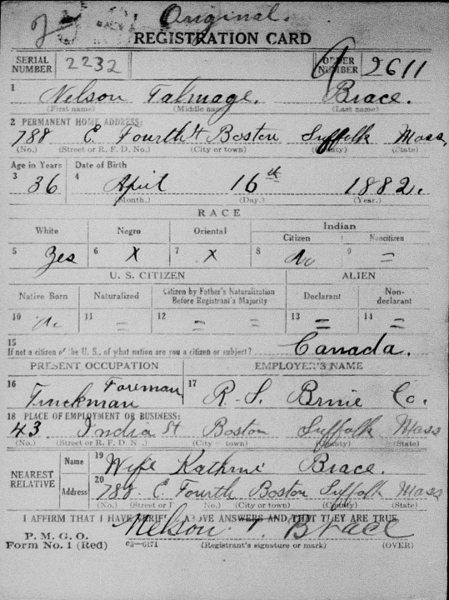 Original.
REGISTRATION CARD
SERIAL NUMBER 2232 ORDER NUMBER 2611
1 Nelson Talmage. Brace.
(First name) (Middle name) (Last name)
2 PERMANENT HOME ADDRESS:
788 E. Fourth St Boston Suffolk Mass,
(No.) (Street or R. F. D. No.) (City or town) (County) (State)
Age in Years Date of Birth
3 36 4 April 16th 1882.
(Month.) (Day.) (Year.)
RACE
White Negro Oriental Indian
Citizen Noncitizen
5 Yes 6 X 7 X 8 No 9 =
U. S. CITIZEN ALIEN
Native Born Naturalized Citizen by Father's Naturalization Before Registrant's Majority Declarant Non-declarant
10 No 11 = 12 = 13 = 14 =
15
If not a citizen of the U. S., of what nation are you a citizen or subject? Canada.
PRESENT OCCUPATION EMPLOYER'S NAME
16 Truckman Foreman 17 R. S. Co.
18 PLACE OF EMPLOYMENT OR BUSINESS:
43 India St Boston Suffolk Mass
(No.) (Street or R. F. D. No.) (City or town) (County) (State)
NEAREST RELATIVE
Name 19 Wife Brace.
Address 20 788 E Fourth Boston Suffolk Mass
I AFFIRM THAT I HAVE VERIFIED ABOVE ANSWERS AND THAT THEY ARE TRUE
P. M. G. O.
Form No. 1 (Red) Nelson T. Brace
(Registrant's signature or mark) (OVER)